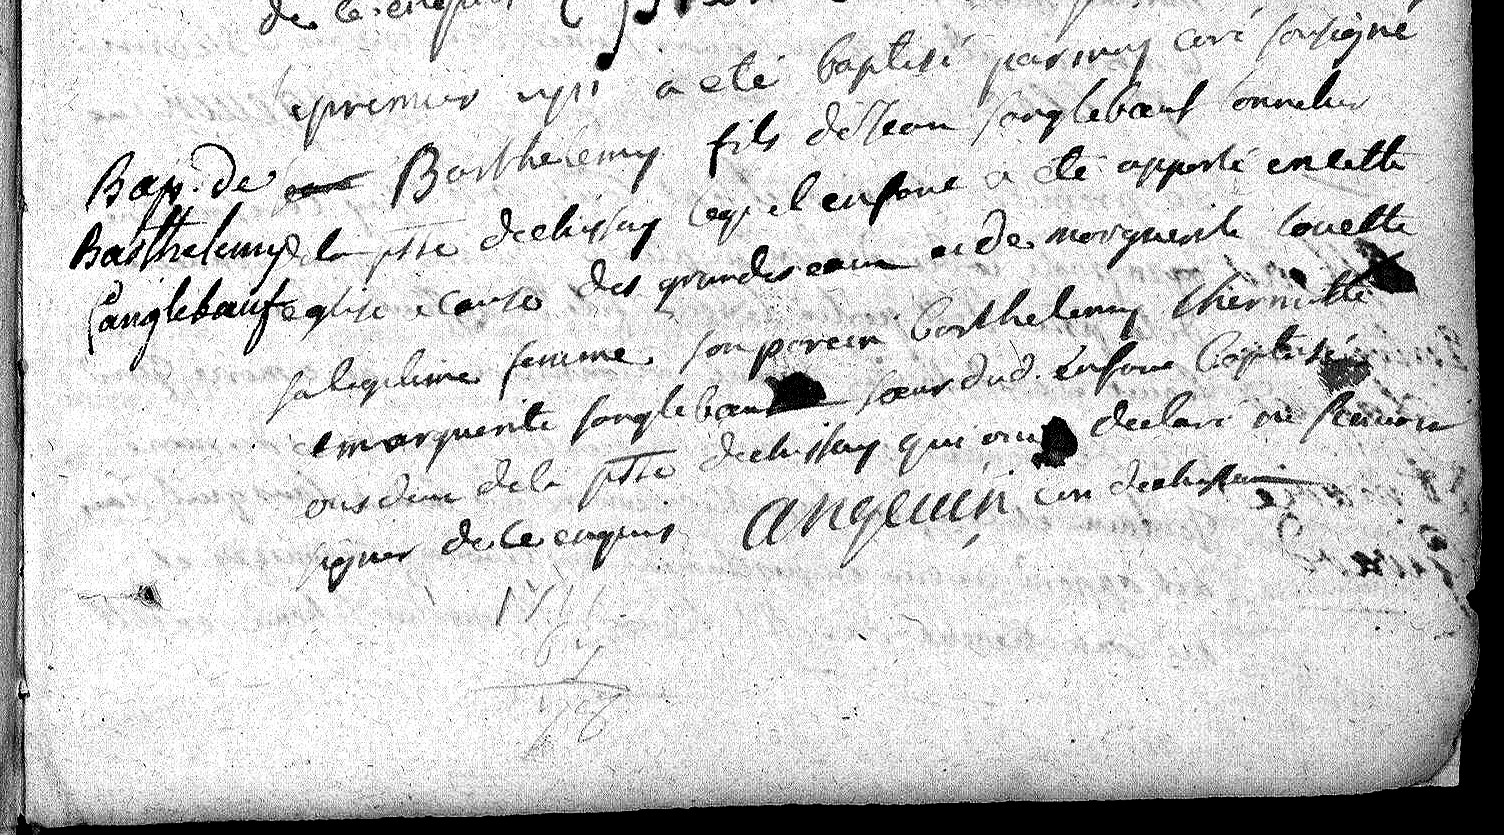 de ce enquis
le premier a eté baptisé par moy curé sousigné
Bap. de Barthelemy fils de Jean sanglebœuf tonnelier
Barthelemy de la psse dechissay lequel enfant a eté apporté en cette
Sanglebœuf eglise a cause des grandes eaux et de marguerite louette
sa legitime femme son parein barthelemy thermitte
et marguerite sanglebœuf sœur dud. Enfant baptisé
tous deux de la psse dechissay qui ont declaré ne scavoir
signer de ce enquis Angeuin curé dechissai